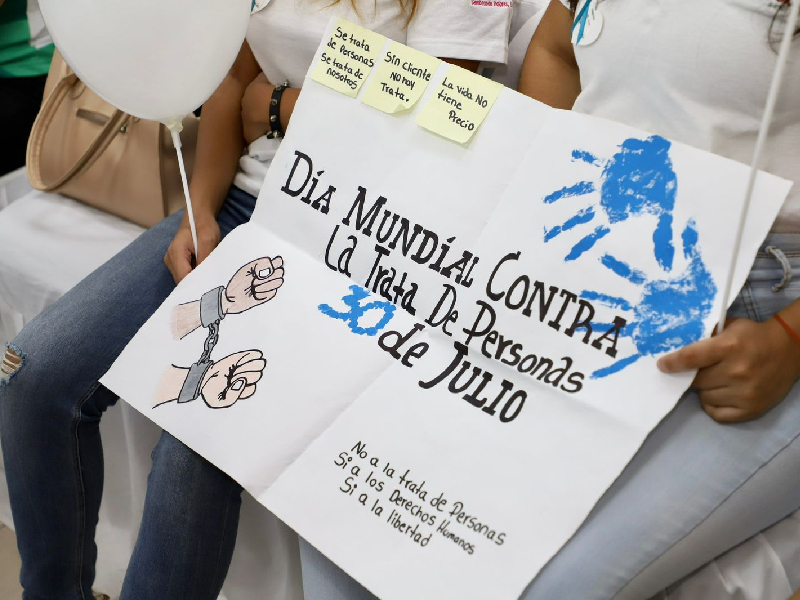 Se trata
de Personas
Se trata de
nosotros
Sin cliente
No hay
Trata.
La vida No
tiene
Precio
Día Mundial Contra
La Trata De Personas
30 de Julio
No a la trata de Personas
Si a los Derechos Humanos
Si a la libertad